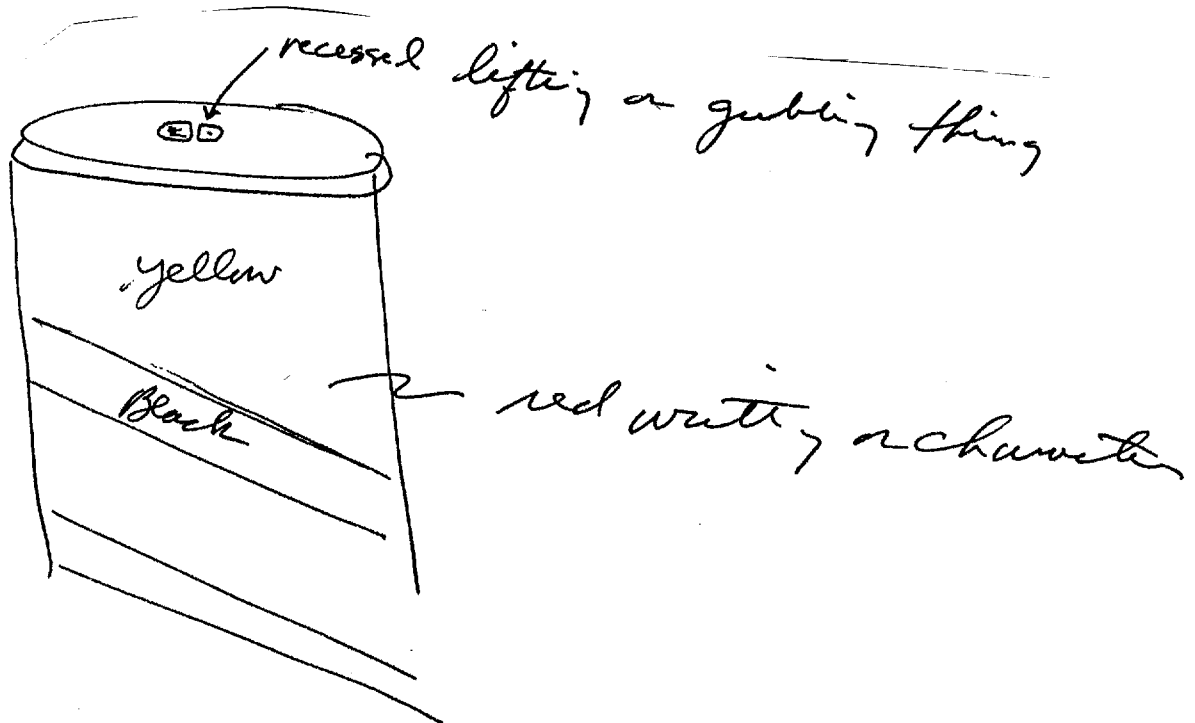 recessed lifting or grabbing thing
yellow
Black
red writing or characters